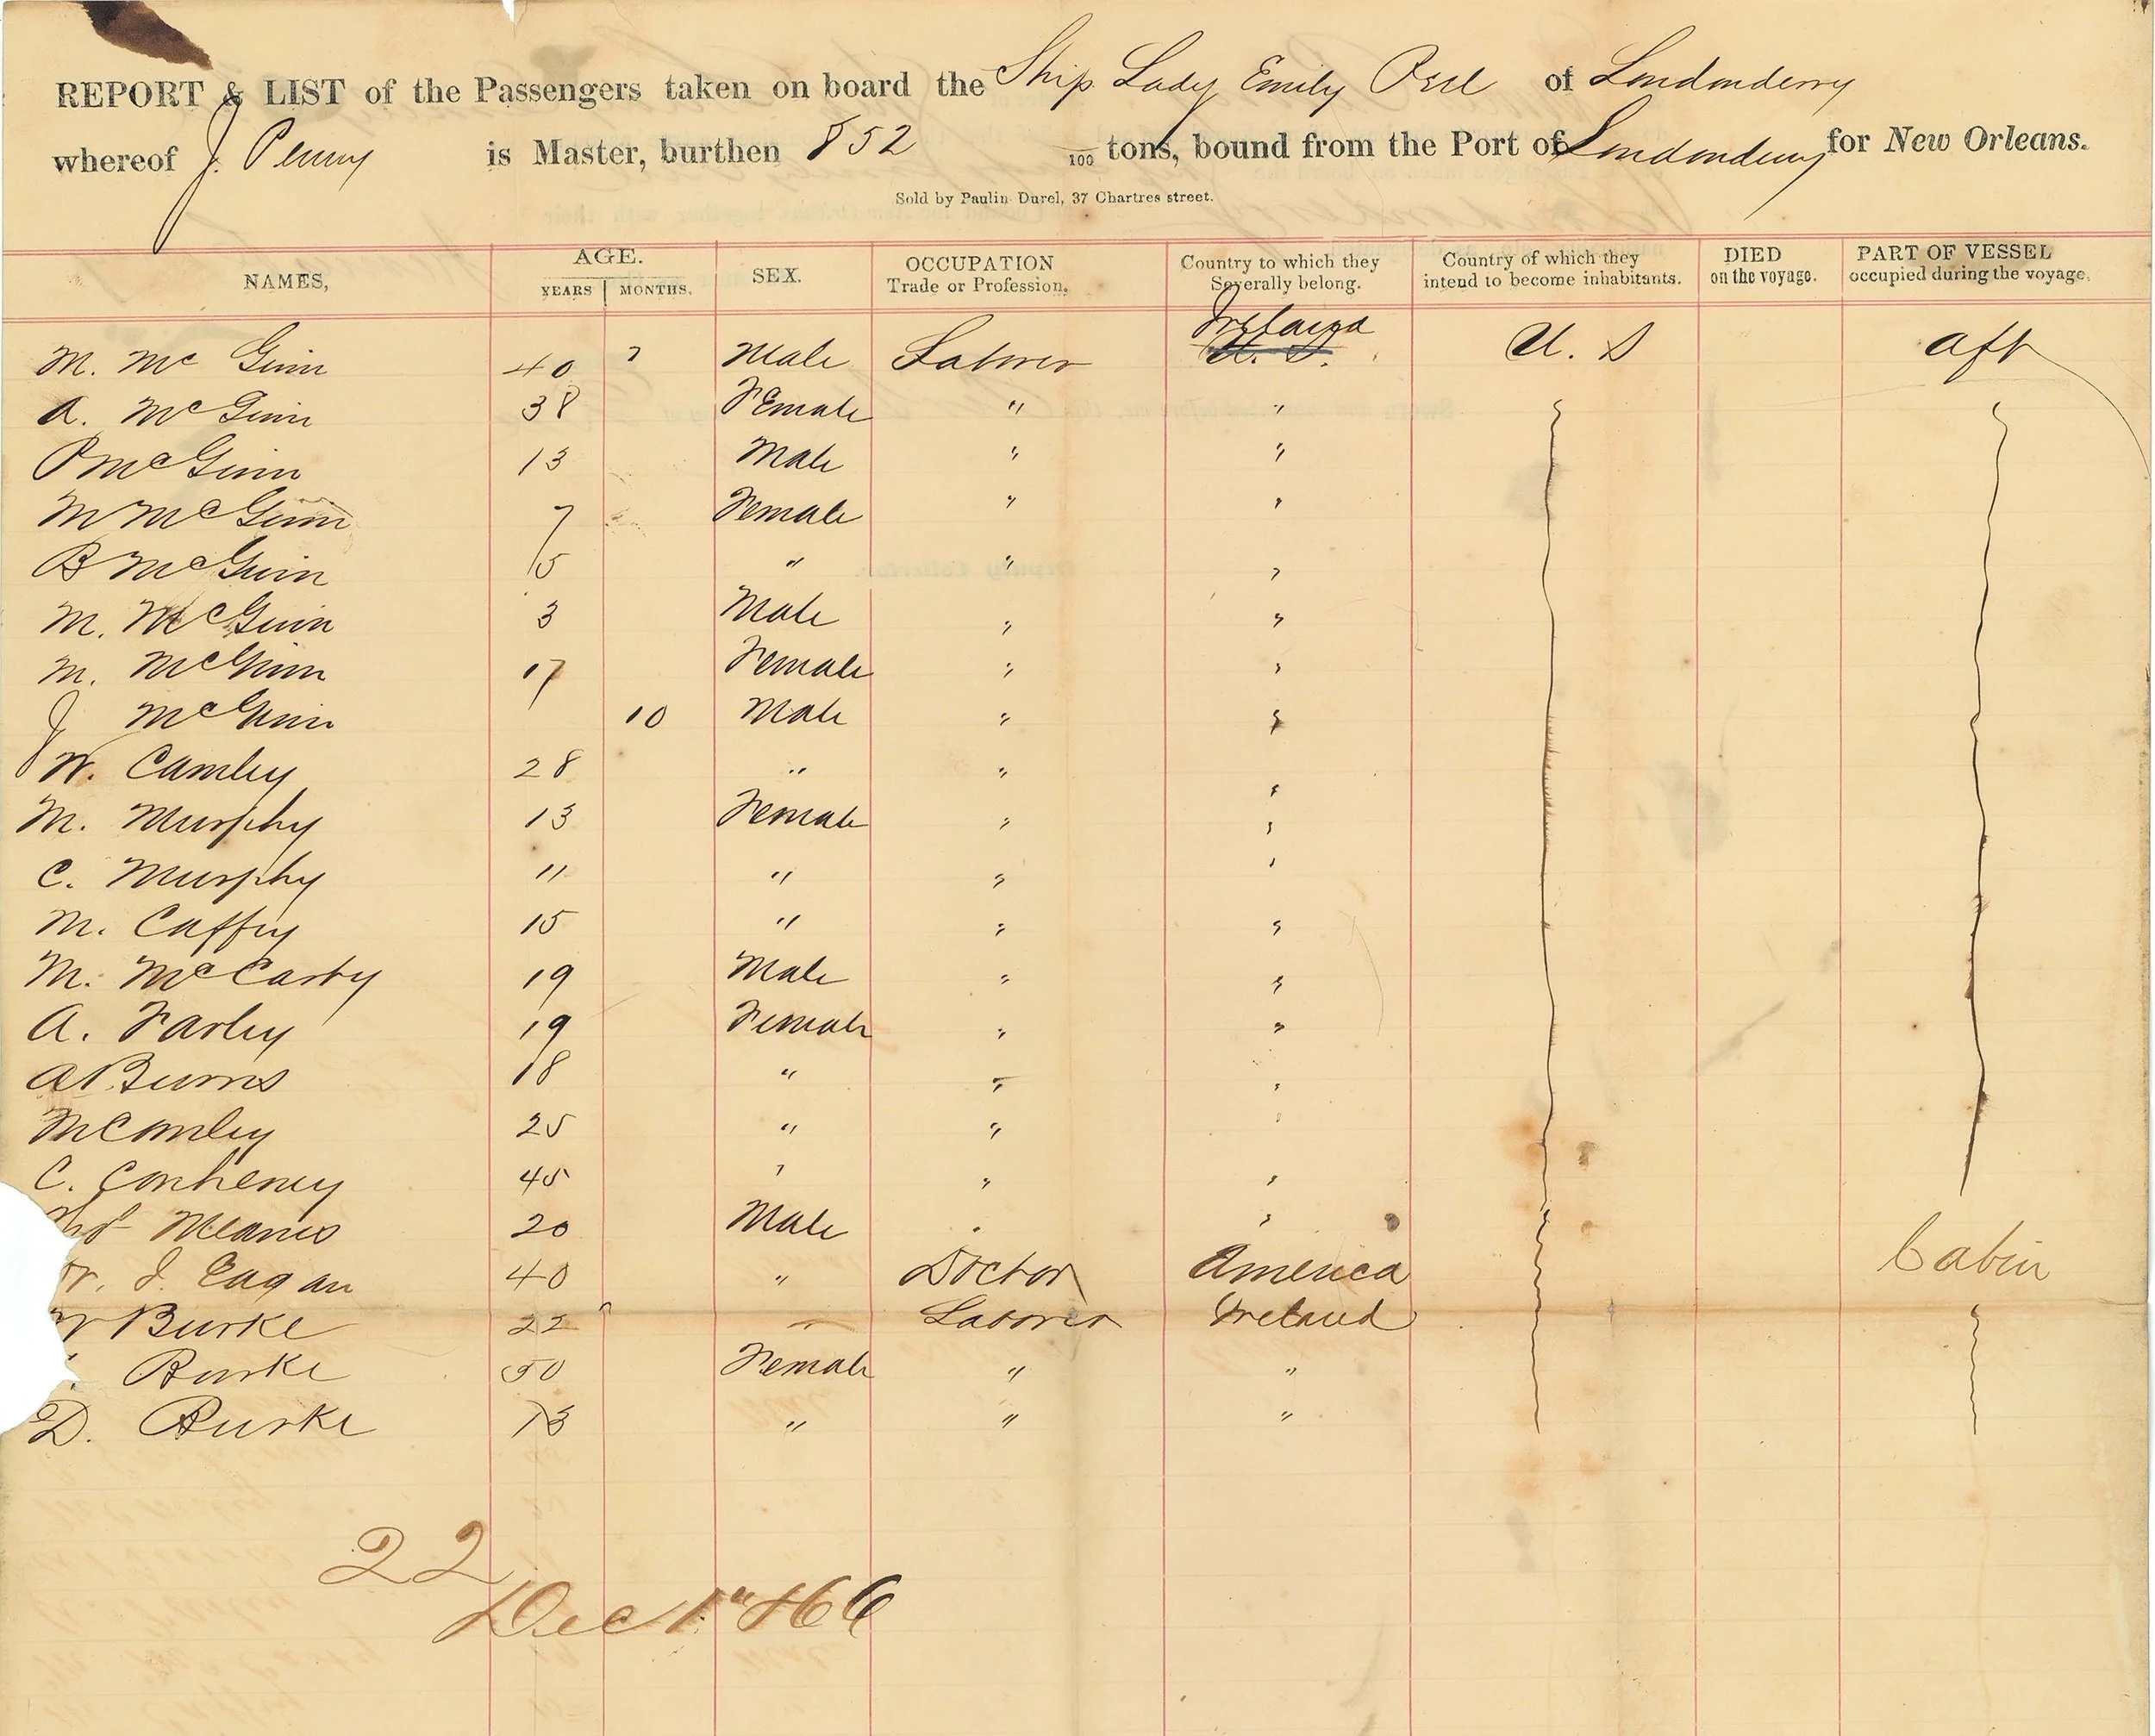 REPORT & LIST of the Passengers taken on board the Ship Lady Emily Peel of Londonderry
whereof J. Penny is Master, burthen 852 /100 tons, bound from the Port of Londonderry for New Orleans.
Sold by Paulin Durel, 37 Chartres street.
NAMES, AGE. YEARS MONTHS. SEX. OCCUPATION Trade or Profession. Country to which they Severally belong. Country of which they intend to become inhabitants. DIED on the voyage. PART OF VESSEL occupied during the voyage.
M. McGinn 40 Male Laborer Ireland U. S aft
A. McGinn 38 Female " "
P McGinn 13 Male " "
M McGinn 7 Female " "
B McGinn 15 " " "
M. McGinn 3 Male " "
M. McGinn 17 Female " "
J McGinn 10 Male " "
W. Camley 28 " " "
M. Murphy 13 Female " "
C. Murphy 11 " " "
M. Caffey 15 " " "
M. McCarty 19 Male " "
A. Farley 19 Female " "
A Burns 18 " " "
M Conley 25 " " "
C. Conheney 45 " " "
Meanes 20 Male " "
J. Eagan 40 " Doctor America Cabin
Burke 22 " Laborer Ireland
Burke 50 Female " "
D. Burke 13 " " "
22
Dec 1" 1866